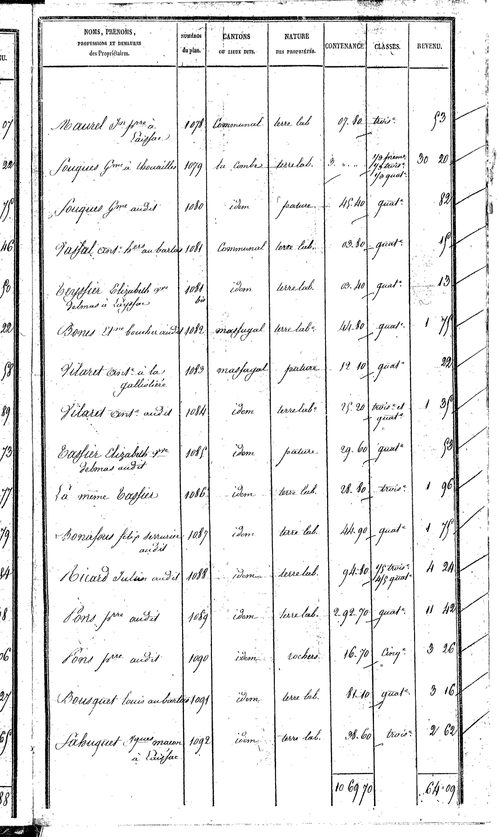 NOMS, PRÉNOMS, PROFESSIONS ET DEMEURES des Propriétaires. NUMÉROS du plan. CANTONS OU LIEUX DITS. NATURE DES PROPRIÉTÉS. CONTENANCE. CLASSES. REVENU.
07 Maurel Jn pre à 1078 Communal terre lab. 07.80 trois.e 53
Laissac
22 Fouques Gme à thouailles 1079 la Combe terre lab. 30 20
75 Fouques Gme audit 1080 idem pature 45.40 quat.e 82
46 Vassal ant. hers au barlas 1081 Communal terre lab. 03.80 quat.e 15
50 Teyssier Elizabeth vve 1081 bis idem terre lab. 03.40 quat.e 13
delmas à Layssac
22 Bones Etne boucher audit 1082 massugal terre lab. 44.80 quat.e 1 75
58 Vilaret ant. à la 1083 massugal pature 12 10 quat.e 22
galliotière
89 Vilaret ant. audit 1084 idem terre lab. 25.20 trois.e et 1 35
quat.e
73 Tassier Elizabeth vve 1085 idem pature 29.60 quat.e 53
delmas audit
77 La même Tassier 1086 idem terre lab. 28.80 trois.e 1 96
79 Bonafous felip serrurier 1087 idem terre lab. 44.90 quat.e 1 75
audit
84 Ricard Julien audit 1088 idem terre lab. 94.80 1/5 trois.e 4 24
4/5 quat.e
Pons pre audit 1089 idem terre lab. 2.92.70 quat.e 11 42
06 Pons pre audit 1090 idem rochers 16.70 Cinq.e 3 26
27 Bousquet louis au barlas 1091 idem terre lab. 81.10 quat.e 3 16
65 Sahuguet Jques macon 1092 idem terre lab. 38.60 trois.e 2 62
à Laissac
88 10 69 70 64.09